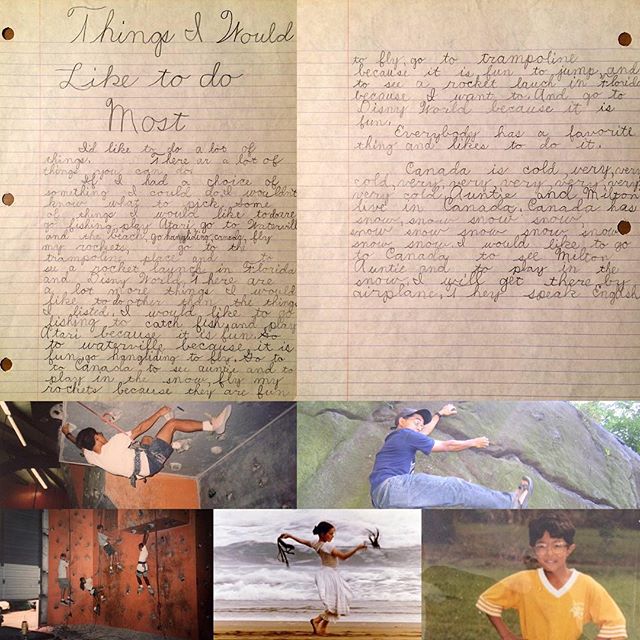 Things I Would
Like to do
Most
I'd like to do a lot of
things. There ar a lot of
things you can do.
If I had a choice of
something I could do I wouldn't
know what to pick. Some
of things I would like to do are
go fishing, play Atari, go to Waterville
and the beach, go hangliding, canada, fly
my rockets, go to the
trampoline place and to
see a rocket launch in Florida
and Disny World. There are
a lot more things I would
like to do other than the things
I listed. I would like to go
fishing to catch fish, and play
Atari because it is fun. Go
to waterville because it is
fun, go hangliding to fly. Go to
to Canada to see auntie and to
play in the snow, fly my
rockets because they are fun
to fly, go to trampoline
because it is fun to jump, and
to see a rocket lauch in Florida
because I want to. And go to
Disny World because it is
fun.
Everybody has a favorite
thing and likes to do it.
Canada is cold, very, very
cold, very, very, very, very, very
very cold. Auntie and Milton
live in Canada. Canada has
snow, snow, snow, snow,
snow, snow, snow, snow, snow
snow, snow. I would like to go
to Canada to see Milton,
Auntie and to play in the
snow. I will get there by
airplane. They speak English